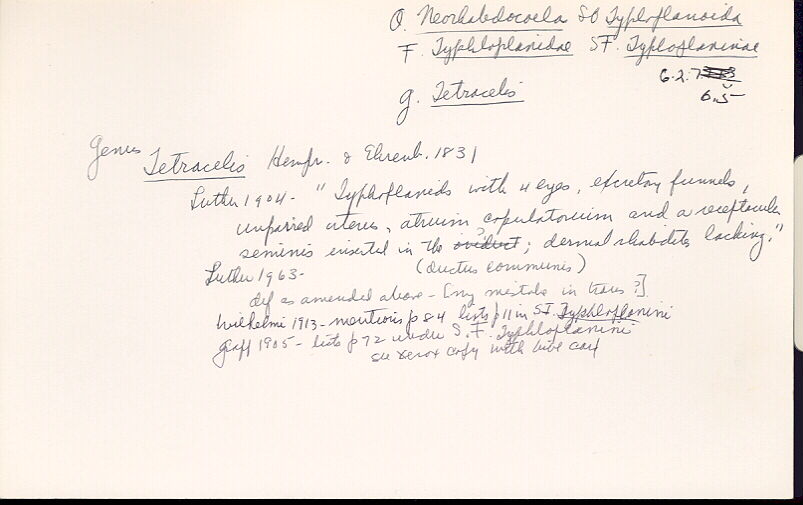 O. Neorhabdocoela SO Typhloplanoida
F. Typhloplanidae SF. Typhloplaninae
6.2.7
6.5
g. Tetracelis
Genus Tetracelis Hempr. & Ehrenb. 1831
Luther 1904 - "Typhloplanids with 4 eyes, excretory funnels,
unpaired uterus, atrium copulatorium and a receptaculum
seminis inserted in the oviduct?; dermal rhabdites lacking."
(ductus communis)
Luther 1963 -
def as amended above - [my mistake in trans?]
Wilhelmi 1913 - mentions p 84 lists p 11 in S.F. Typhloplanini
Graff 1905 - lists p 72 under S.F. Typhloplanini
see xerox copy with bibl card